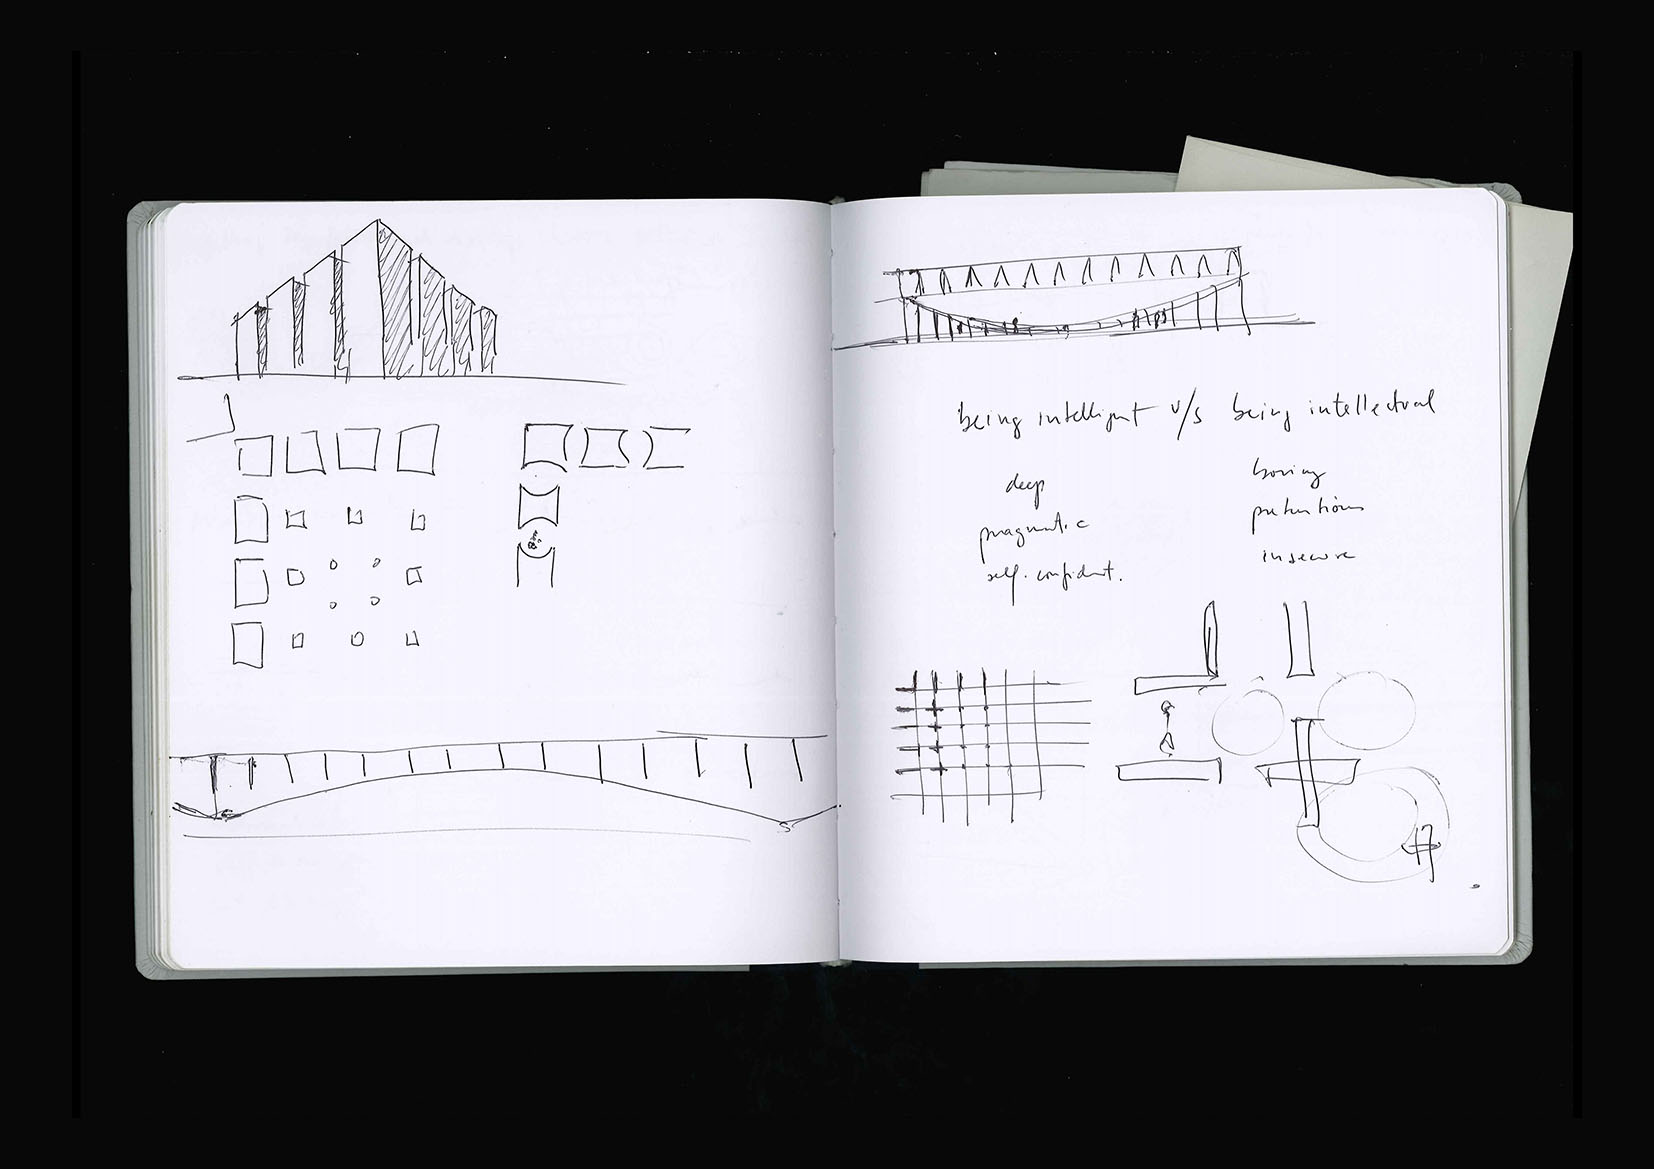 being intelligent v/s being intellectual
deep
pragmatic
self-confident.
boring
pretentious
insecure